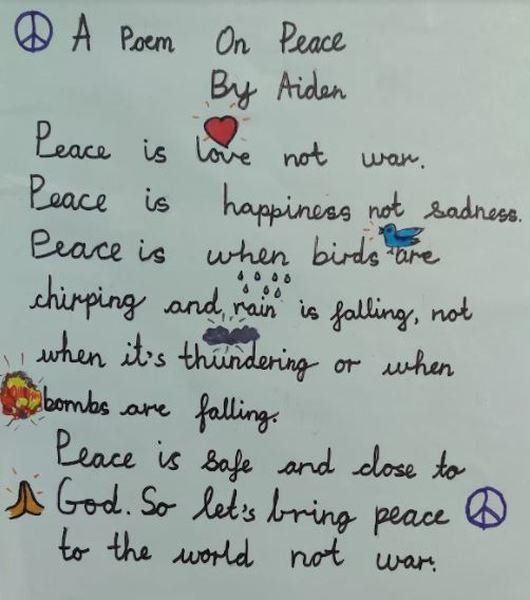 A Poem On Peace
By Aiden
Peace is love not war.
Peace is happiness not sadness.
Peace is when birds are
chirping and rain is falling, not
when it's thundering or when
bombs are falling.
Peace is safe and close to
God. So let's bring peace
to the world not war.